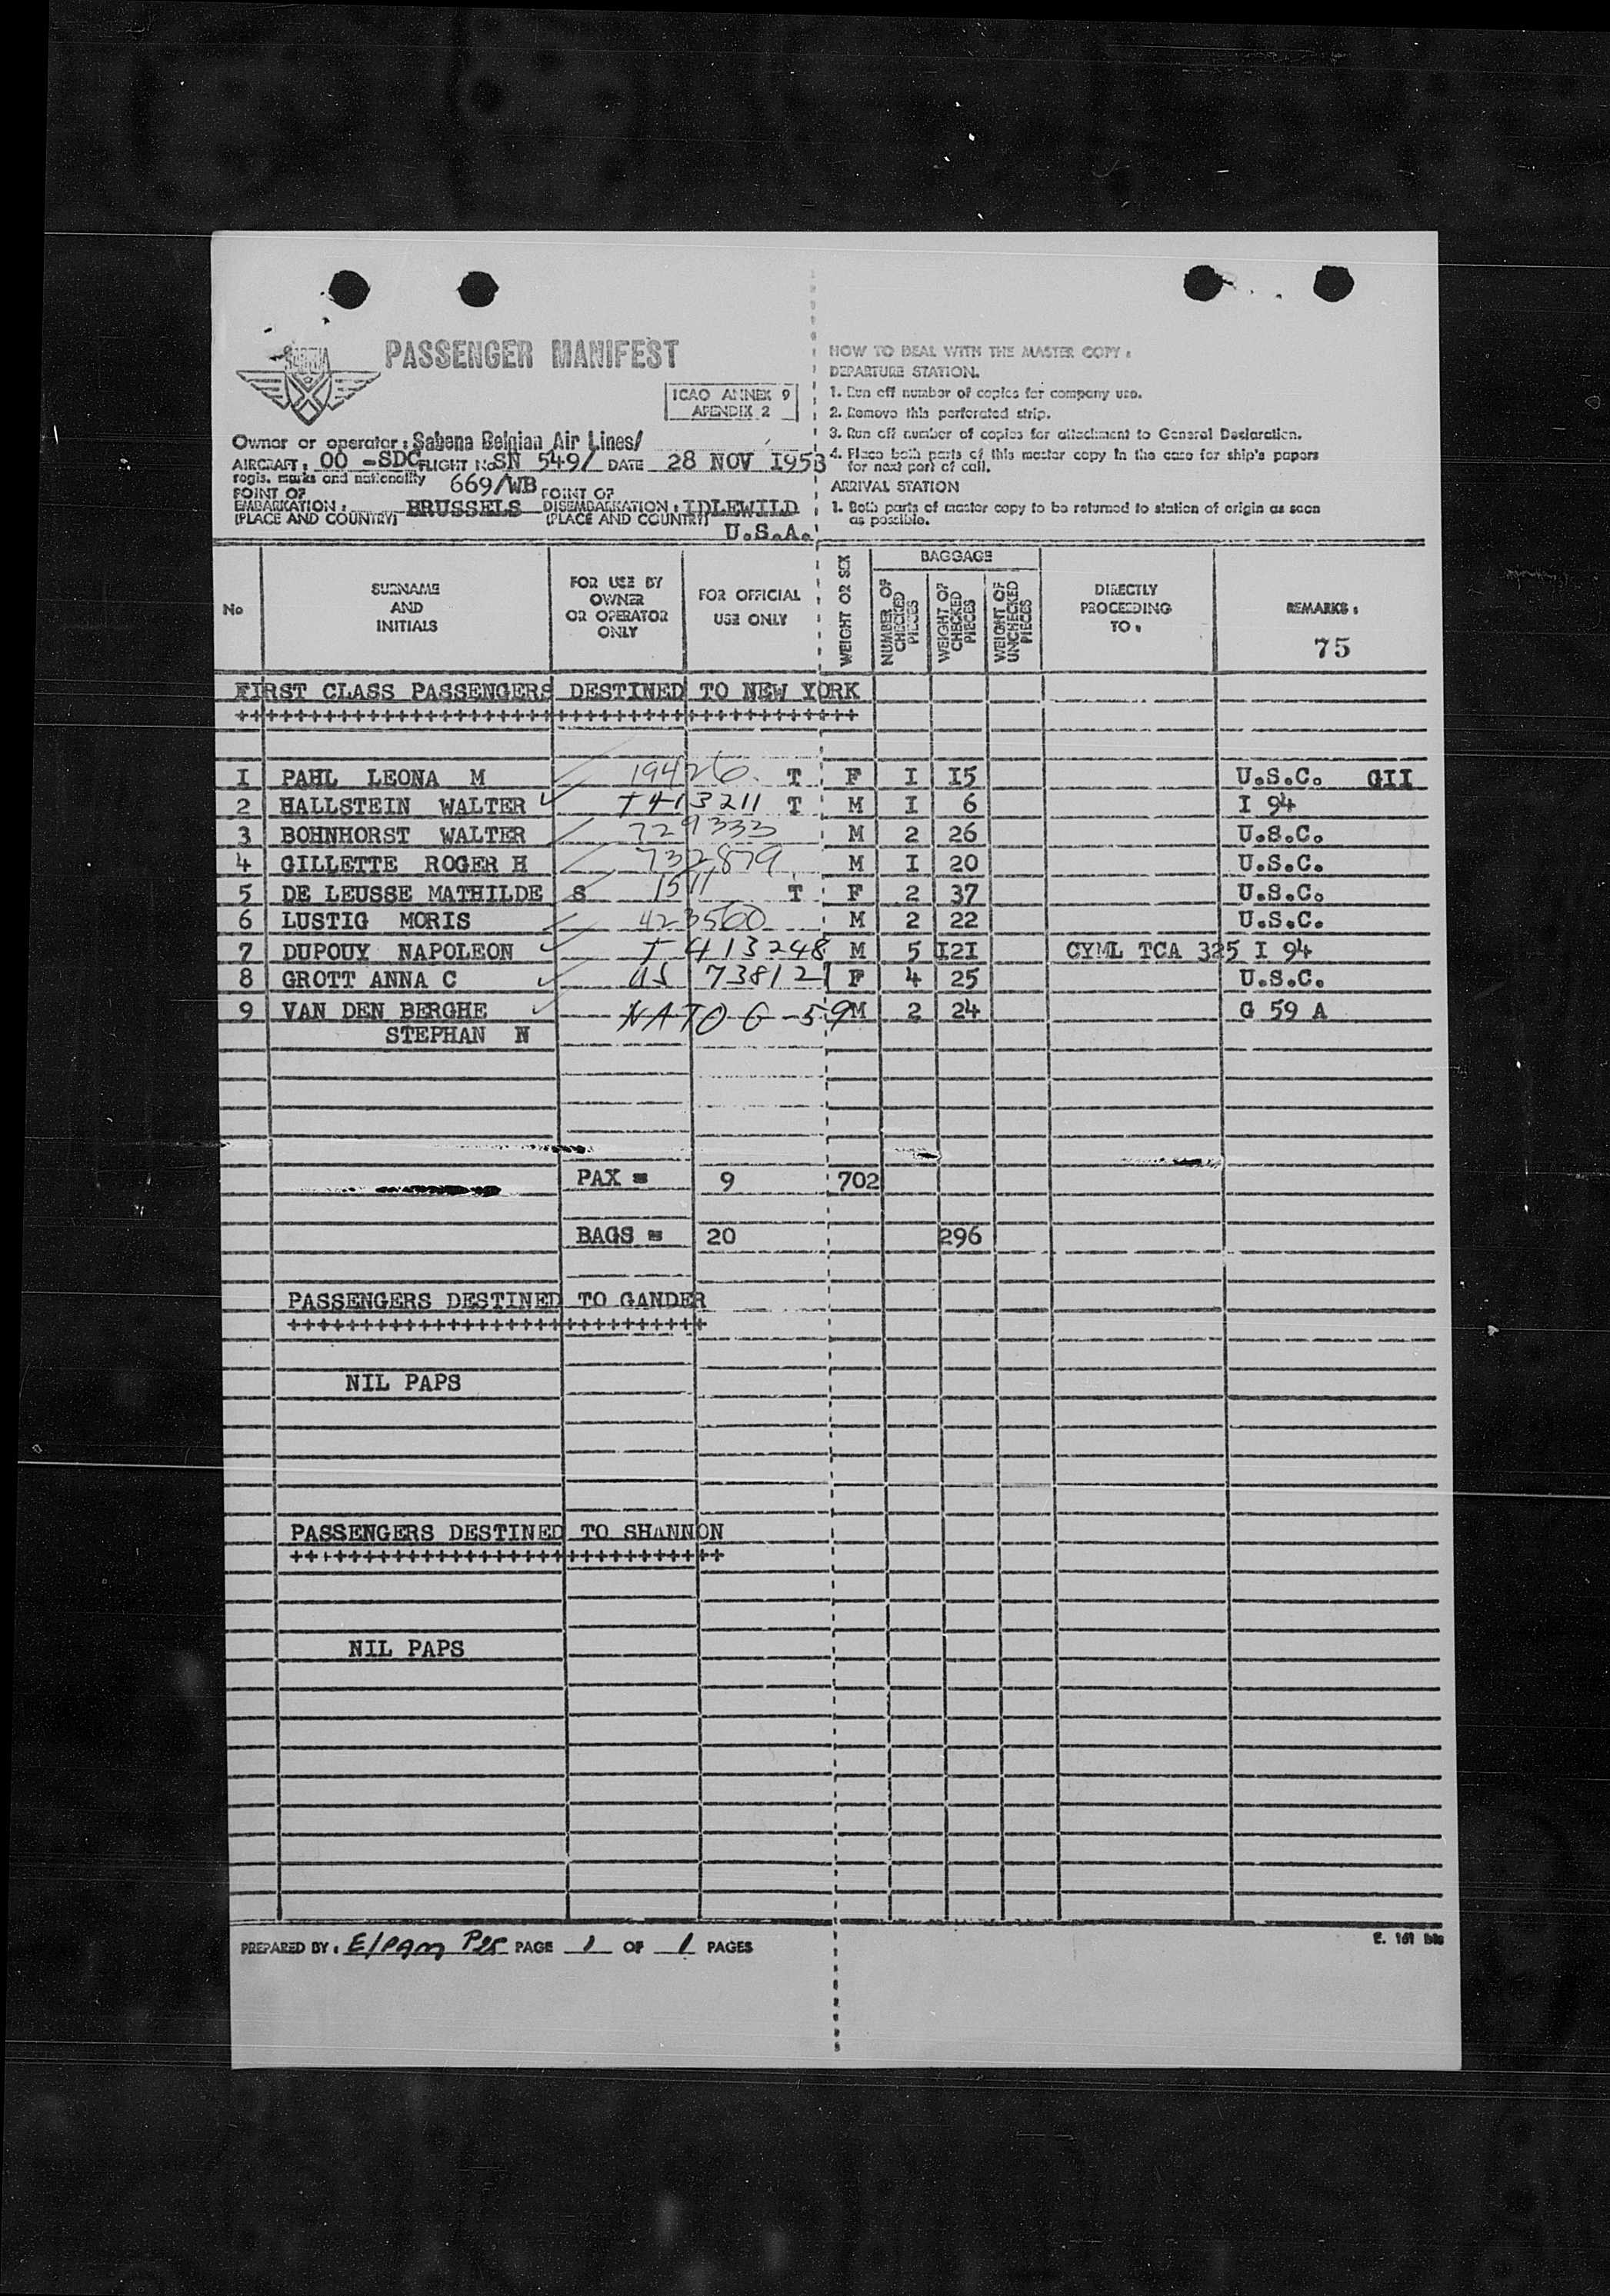 SABENA
PASSENGER MANIFEST
ICAO ANNEX 9
APENDIX 2
Owner or operator : Sabena Belgian Air Lines/
AIRCRAFT : OO -SDC FLIGHT No SN 549/ DATE 28 NOV 1953
regis. marks and nationality 669/WB
POINT OF EMBARKATION : BRUSSELS POINT OF DISEMBARKATION : IDLEWILD
(PLACE AND COUNTRY) (PLACE AND COUNTRY) U.S.A.
HOW TO DEAL WITH THE MASTER COPY :
DEPARTURE STATION.
1. Run off number of copies for company use.
2. Remove this perforated strip.
3. Run off number of copies for attachment to General Declaration.
4. Place both parts of this master copy in the case for ship's papers
for next port of call.
ARRIVAL STATION
1. Both parts of master copy to be returned to station of origin as soon
as possible.
No
SURNAME
AND
INITIALS
FOR USE BY
OWNER
OR OPERATOR
ONLY
FOR OFFICIAL
USE ONLY
WEIGHT OR SEX
BAGGAGE
NUMBER OF
CHECKED
PIECES
WEIGHT OF
CHECKED
PIECES
WEIGHT OF
UNCHECKED
PIECES
DIRECTLY
PROCEEDING
TO :
REMARKS :
75
FIRST CLASS PASSENGERS DESTINED TO NEW YORK
+++++++++++++++++++++++++++++++++++++++++++
1 PAHL LEONA M 19426 T F I I5 U.S.C. GII
2 HALLSTEIN WALTER T 413211 T M I 6 I 94
3 BOHNHORST WALTER 729333 M 2 26 U.S.C.
4 GILLETTE ROGER H 732879 M I 20 U.S.C.
5 DE LEUSSE MATHILDE S 1511 T F 2 37 U.S.C.
6 LUSTIG MORIS 423560 M 2 22 U.S.C.
7 DUPOUY NAPOLEON T 413248 M 5 I2I CYML TCA 325 I 94
8 GROTT ANNA C US 738121 F 4 25 U.S.C.
9 VAN DEN BERGHE NATO G-59 M 2 24 G 59 A
STEPHAN N
PAX = 9 702
BAGS = 20 296
PASSENGERS DESTINED TO GANDER
+++++++++++++++++++++++++++++
NIL PAPS
PASSENGERS DESTINED TO SHANNON
++++++++++++++++++++++++++++++
NIL PAPS
PREPARED BY : PAGE 1 OF 1 PAGES
E. 161 bis